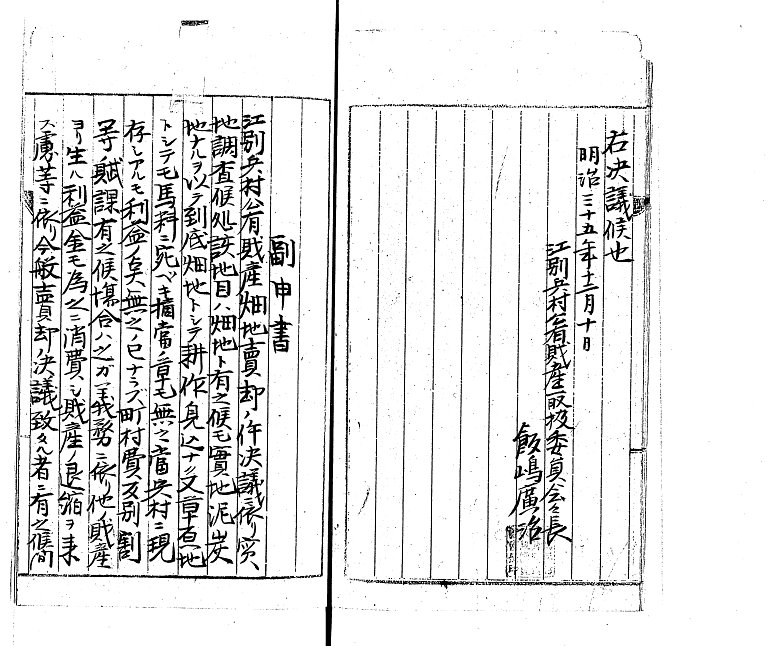 右决議候也
明治三十五年十二月十日
江別兵村公有財産取扱委員会々長
飯嶋廣治
副申書
江別兵村公有財産畑地賣却ノ件決議依リ実
地調査候処該地目ノ畑地ト有之候モ實地泥炭
地ナルヲ以テ到底畑地トシテ耕作見込ナク又草苅地
トシテモ馬料ニ宛ベキ相當ノ草モ無之當兵村ニ現
存シアルモ利益ハ無之ノミナラズ町村費反別割
等賦課有之候場合ハ之ガ義務ニ依リ他ノ財産
ヨリ生ル利益金モ為之ニ消費シ財産ノ退縮ヲ来
ス慮等ニ依リ今般賣却ノ決議致タル者ニ有之候間